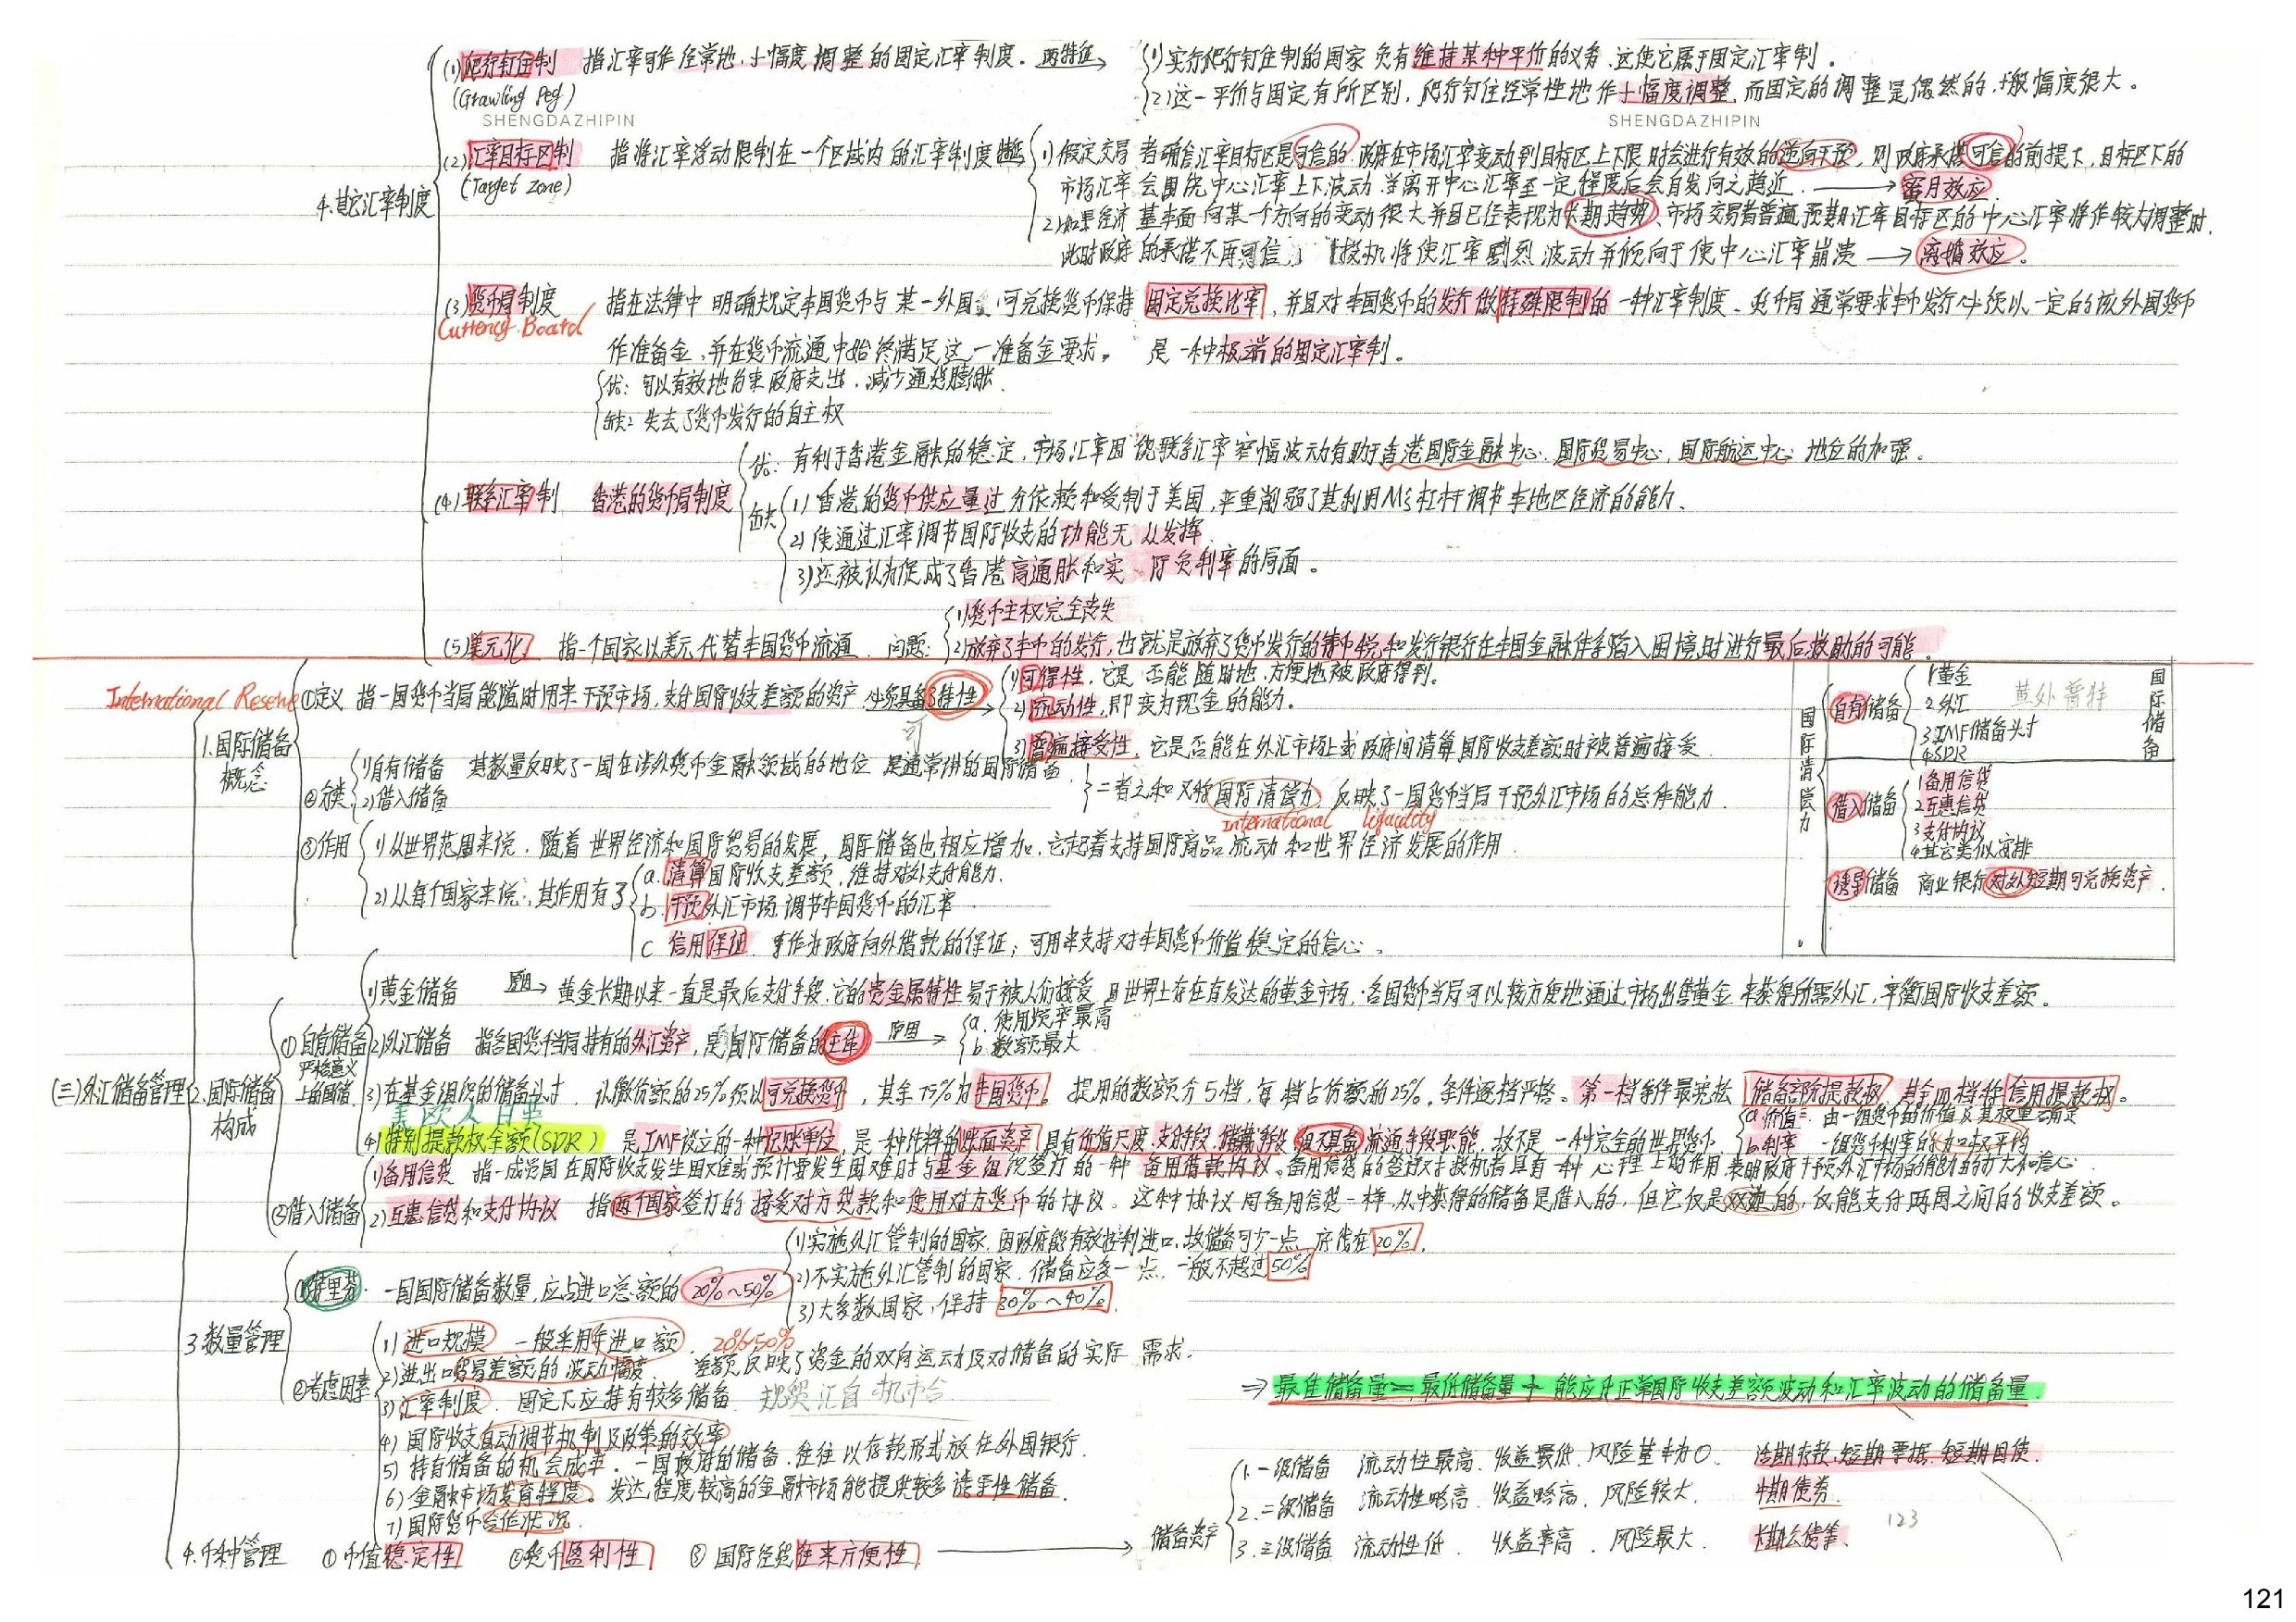 4.其它汇率制度
(1)爬行钉住制 指汇率可作经常地、小幅度调整的固定汇率制度。两特征→
(Crawling Peg)
1)实行爬行钉住制的国家负有维持某种平价的义务,这使它属于固定汇率制。
2)这一平价与固定有所区别,爬行钉住经常性地作小幅度调整,而固定的调整是偶然的,一般幅度很大。
SHENGDAZHIPIN
SHENGDAZHIPIN
(2)汇率目标区制 指将汇率浮动限制在一个区域内的汇率制度
(Target Zone)
1)假定交易者确信汇率目标区是可信的,政府在市场汇率变动到目标区上下限时会进行有效的逆向干预,则政府承诺可信的前提下,目标区下的
市场汇率会围绕中心汇率上下波动,当离开中心汇率至一定程度后会自发向之趋近。→蜜月效应
2)如果经济基本面向某一个方向的变动很大并且已经表现为长期趋势,市场交易者普遍预期汇率目标区的中心汇率将作较大调整时,
此时政府的承诺不再可信,投机将使汇率剧烈波动并倾向于使中心汇率崩溃→离婚效应。
(3)货币局制度 指在法律中明确规定本国货币与某一外国可兑换货币保持固定兑换比率,并且对本国货币的发行做特殊限制的一种汇率制度。货币局通常要求本币发行必须以一定的该外国货币
Currency Board
作准备金,并在货币流通中始终满足这一准备金要求。 是一种极端的固定汇率制。
优:可以有效地约束政府支出,减少通货膨胀
缺:失去了货币发行的自主权
(4)联系汇率制 香港的货币局制度
优:有利于香港金融的稳定,市场汇率围绕联系汇率窄幅波动有助于香港国际金融中心、国际贸易中心、国际航运中心地位的加强。
缺 1)香港的货币供应量过分依赖和受制于美国,严重削弱了其利用Ms杠杆调节本地区经济的能力。
2)使通过汇率调节国际收支的功能无从发挥
3)还被认为促成了香港高通胀和实际负利率的局面。
(5)美元化 指一个国家以美元代替本国货币流通 问题:
1)货币主权完全丧失
2)放弃了本币的发行,也就是放弃了货币发行的铸币税和发行银行在本国金融体系陷入困境时进行最后救助的可能。
(三)外汇储备管理
International Reserve
1.国际储备概念
①定义 指一国货币当局能随时用来干预市场,支付国际收支差额的资产 必须具备3特性→
可
1)可得性,它是否能随时地、方便地被政府得到。
2)流动性,即变为现金的能力。
3)普遍接受性,它是否能在外汇市场上或政府间清算国际收支差额时被普遍接受
②分类 1)自有储备 其数量反映了一国在涉外货币金融领域的地位 是通常讲的国际储备
2)借入储备
二者之和又称国际清偿力,反映了一国货币当局干预外汇市场的总体能力.
International Liquidity
③作用 1)从世界范围来说,随着世界经济和国际贸易的发展,国际储备也相应增加,它起着支持国际商品流动和世界经济发展的作用
2)从每个国家来说,其作用有3
a.清算国际收支差额,维持对外支付能力.
b.干预外汇市场,调节本国货币的汇率
c 信用保证 可作为政府向外借款的保证;可用来支持对本国货币价值稳定的信心。
国际清偿力
自有储备 1黄金
2外汇 黄外普特
3IMF储备头寸
4SDR
国际储备
借入储备 1备用信贷
2互惠信贷
3支付协议
4其它类似安排
诱导储备 商业银行对外短期可兑换资产.
2.国际储备构成
①自有储备
严格意义上的国储
1)黄金储备 原因→黄金长期以来一直是最后支付手段,它的贵金属特性易于被人们接受,且世界上存在有发达的黄金市场,各国货币当局可以较方便地通过市场出售黄金来获得所需外汇,平衡国际收支差额。
2)外汇储备 指各国货币当局持有的外汇资产,是国际储备的主体 原因→
a.使用频率最高
b.数额最大
3)在基金组织的储备头寸 认缴份额的25%须以可兑换货币,其余75%为本国货币。提用的数额分5档,每档占份额的25%,条件逐档严格。第一档条件最宽松 储备部阶提款权 其余四档称信用提款权。
美欧人日英
4)特别提款权余额(SDR) 是IMF设立的一种记账单位,是一种纯粹的账面资产,具有价值尺度、支付手段、储藏手段但不具备流通手段职能,故不是一种完全的世界货币
a.价值:由一组货币的价值及其权重确定
b.利率 一组货币利率的加权平均
②借入储备 1)备用信贷 指一成员国在国际收支发生困难或预计要发生困难时与基金组织签订的一种备用借款协议。备用信贷的签订对投机者具有一种心理上的作用 表明政府干预外汇市场的能力的扩大和信心
2)互惠信贷和支付协议 指两个国家签订的接受对方贷款和使用对方货币的协议。这种协议同备用信贷一样,从中获得的储备是借入的,但它仅是双边的,仅能支付两国之间的收支差额。
3.数量管理
①特里芬 一国国际储备数量,应占进口总额的20%~50%
1)实施外汇管制的国家,因政府能有效控制进口,故储备可少一点,底线在20%.
2)不实施外汇管制的国家,储备应多一点,一般不超过50%
3)大多数国家,保持30%~40%.
②考虑因素 1)进口规模 一般采用年进口额. 20%~50%
2)进出口贸易差额的波动幅度 差额反映了资金的双向运动及对储备的实际需求.
3)汇率制度.固定下应持有较多储备 规贸汇自机市合
4)国际收支自动调节机制及政策的效率
5)持有储备的机会成本.一国政府的储备,往往以存款形式放在外国银行.
6)金融市场发育程度。发达程度较高的金融市场能提供较多诱导性储备.
7)国际货币合作状况.
⇒最佳储备量=最低储备量+能应付正常国际收支差额波动和汇率波动的储备量.
4.币种管理 ①币值稳定性 ②货币盈利性 ③国际经贸往来方便性 → 储备资产
1.一级储备 流动性最高、收益最低、风险基本为0. 活期存款、短期票据、短期国债.
2.二级储备 流动性略高.收益略高.风险较大. 中期债券.
3.三级储备 流动性低.收益率高.风险最大. 长期公债等.
123
121